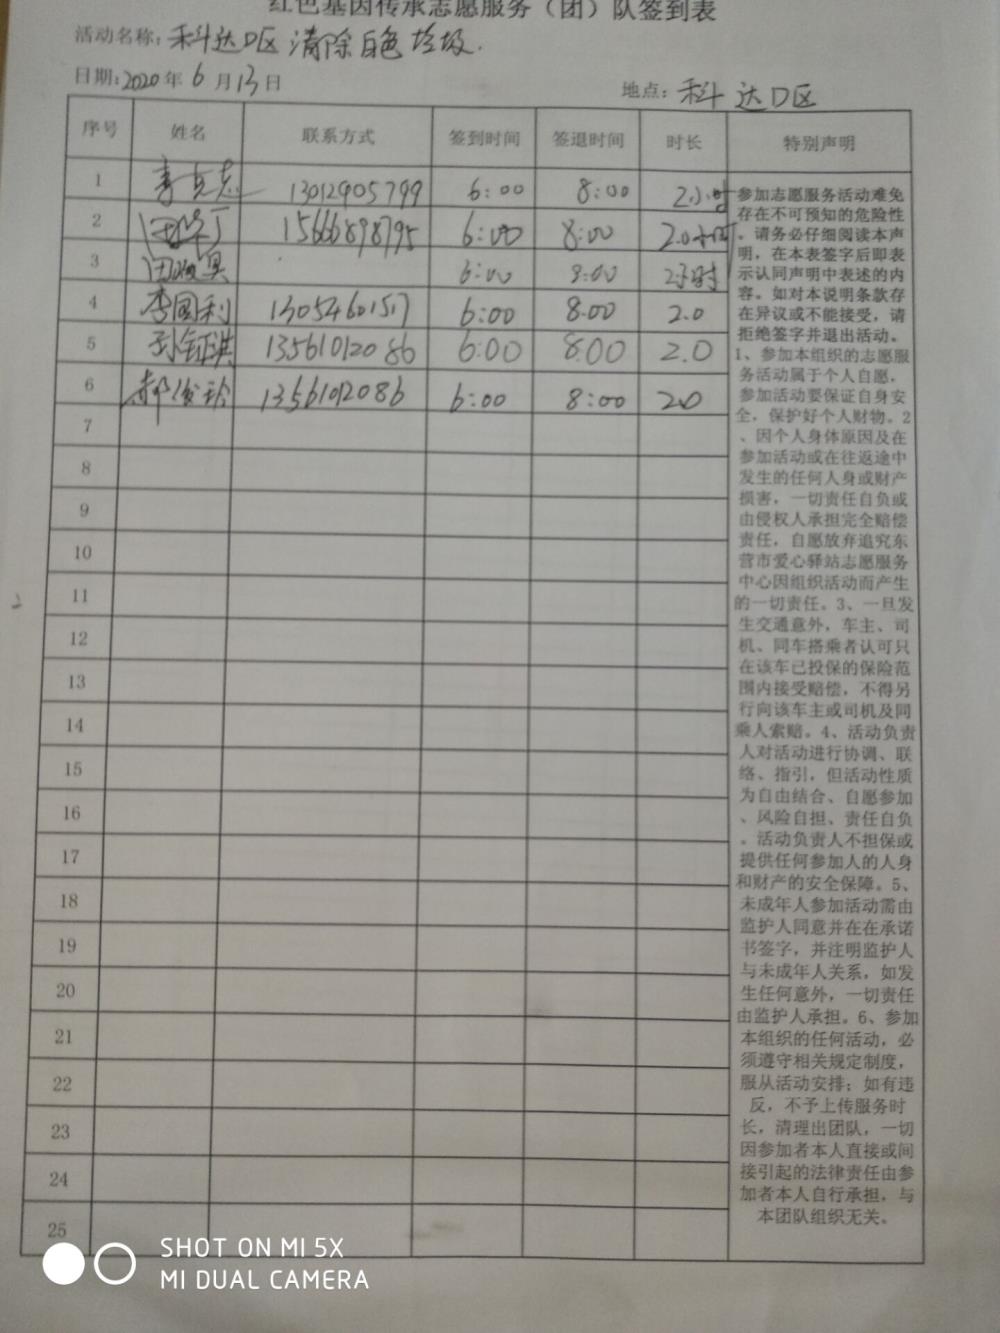 红色基因传承志愿服务（团）队签到表
活动名称：科达D区 清除白色垃圾.
日期：2020年6月13日 地点：科达D区
序号 姓名 联系方式 签到时间 签退时间 时长 特别声明
1 13012905799 6:00 8:00 2小时
2 15666898795 6:00 8:00 2.0小时
3 6:00 8:00 2小时
4 李国利 1305460157 6:00 8.00 2.0
5 孙钲淇 13561012086 6:00 8:00 2.0
6 郝俊玲 13561012086 6:00 8:00 2.0
7
8
9
10
11
12
13
14
15
16
17
18
19
20
21
22
23
24
25
参加志愿服务活动难免
存在不可预知的危险性
。请务必仔细阅读本声
明，在本表签字后即表
示认同声明中表述的内
容。如对本说明条款存
在异议或不能接受，请
拒绝签字并退出活动。
1、参加本组织的志愿服
务活动属于个人自愿，
参加活动要保证自身安
全，保护好个人财物。2
、因个人身体原因及在
参加活动或在往返途中
发生的任何人身或财产
损害，一切责任自负或
由侵权人承担完全赔偿
责任，自愿放弃追究东
营市爱心驿站志愿服务
中心因组织活动而产生
的一切责任。3、一旦发
生交通意外，车主、司
机、同车搭乘者认可只
在该车已投保的保险范
围内接受赔偿，不得另
行向该车主或司机及同
乘人索赔。4、活动负责
人对活动进行协调、联
络、指引，但活动性质
为自由结合、自愿参加
、风险自担、责任自负
。活动负责人不担保或
提供任何参加人的人身
和财产的安全保障。5、
未成年人参加活动需由
监护人同意并在在承诺
书签字，并注明监护人
与未成年人关系，如发
生任何意外，一切责任
由监护人承担。6、参加
本组织的任何活动，必
须遵守相关规定制度，
服从活动安排；如有违
反，不予上传服务时
长，清理出团队，一切
因参加者本人直接或间
接引起的法律责任由参
加者本人自行承担，与
本团队组织无关。
SHOT ON MI 5X
MI DUAL CAMERA